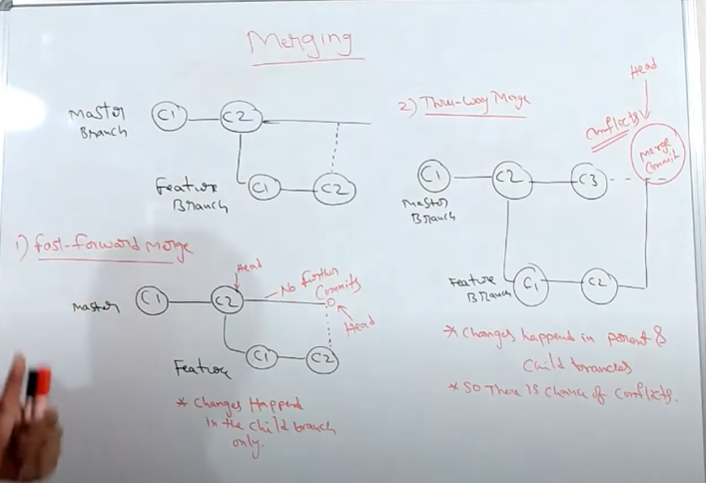 Merging
Master
Branch
C1
C2
Feature
Branch
C1
C2
1) Fast-Forward Merge
Head
No further
Commits
Master
C1
C2
Head
Feature
C1
C2
* Changes Happend
in the child branch
only.
2) Three-Way Merge
Head
Conflicts
Merge
Commit
C1
C2
C3
Master
Branch
Feature
Branch
C1
C2
* Changes happend in parent &
Child branches
* SO There is chance of Conflicts.